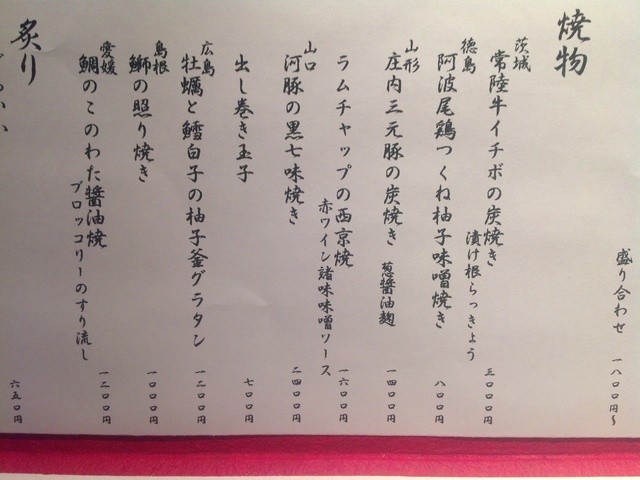 盛り合わせ 一八〇〇円〜
焼物
茨城 常陸牛イチボの炭焼き 漬け根らっきょう 三〇〇〇円
徳島 阿波尾鶏つくね柚子味噌焼き 八〇〇円
山形 庄内三元豚の炭焼き 葱醤油麹 一四〇〇円
ラムチャップの西京焼 赤ワイン諸味味噌ソース 一六〇〇円
山口 河豚の黒七味焼き 二四〇〇円
出し巻き玉子 七〇〇円
広島 牡蠣と鱈白子の柚子釜グラタン 一二〇〇円
島根 鰤の照り焼き 一〇〇〇円
愛媛 鯛のこのわた醤油焼 ブロッコリーのすり流し 一二〇〇円
炙り
六五〇円